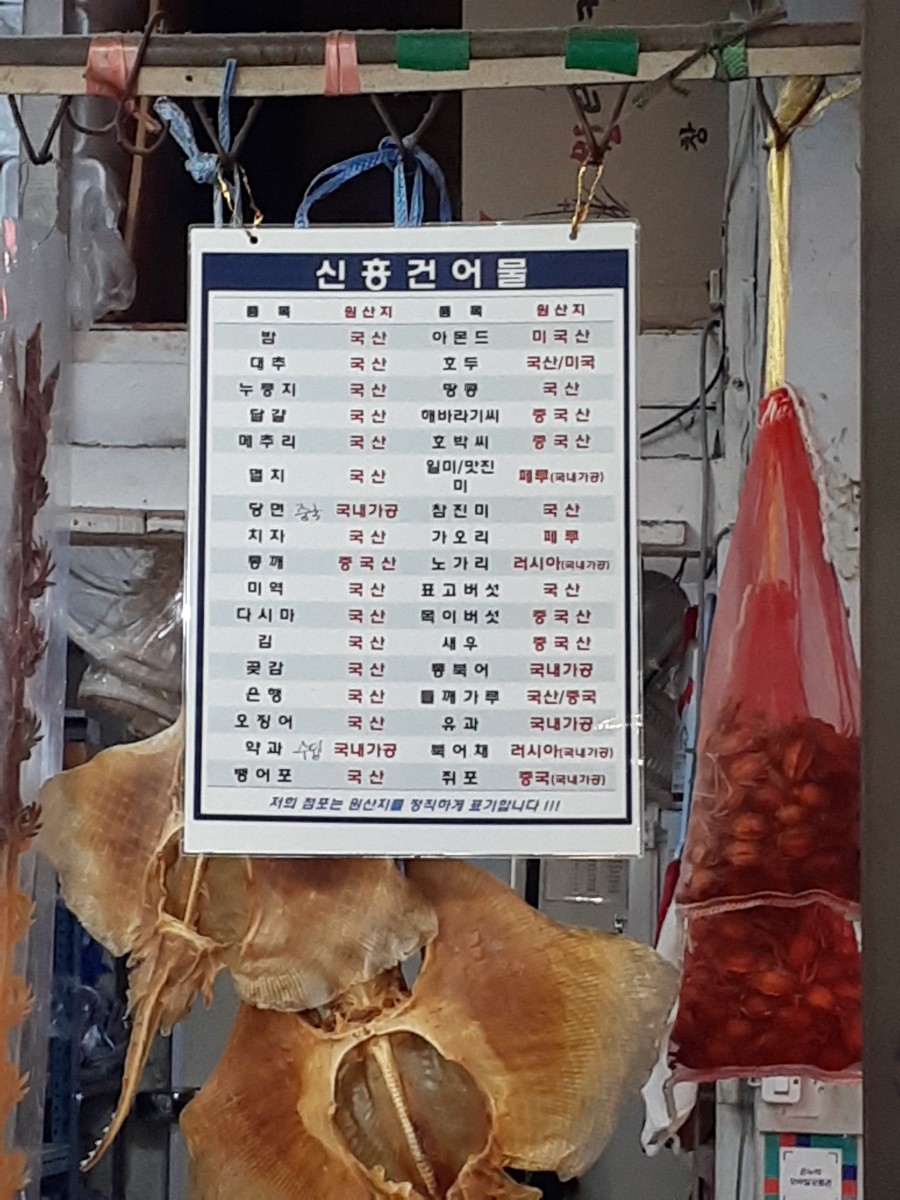 신흥건어물
품목 원산지 품목 원산지
밤 국산 아몬드 미국산
대추 국산 호두 국산/미국
누룽지 국산 땅콩 국산
달걀 국산 해바라기씨 중국산
메추리 국산 호박씨 중국산
멸치 국산 일미/맛진미 페루(국내가공)
당면 중국 국내가공 참진미 국산
치자 국산 가오리 페루
통깨 중국산 노가리 러시아(국내가공)
미역 국산 표고버섯 국산
다시마 국산 목이버섯 중국산
김 국산 새우 중국산
곶감 국산 통북어 국내가공
은행 국산 들깨가루 국산/중국
오징어 국산 유과 국내가공
약과 수입 국내가공 북어채 러시아(국내가공)
뱅어포 국산 쥐포 중국(국내가공)
저희 점포는 원산지를 정직하게 표기합니다 !!!
온누리
모바일상품권